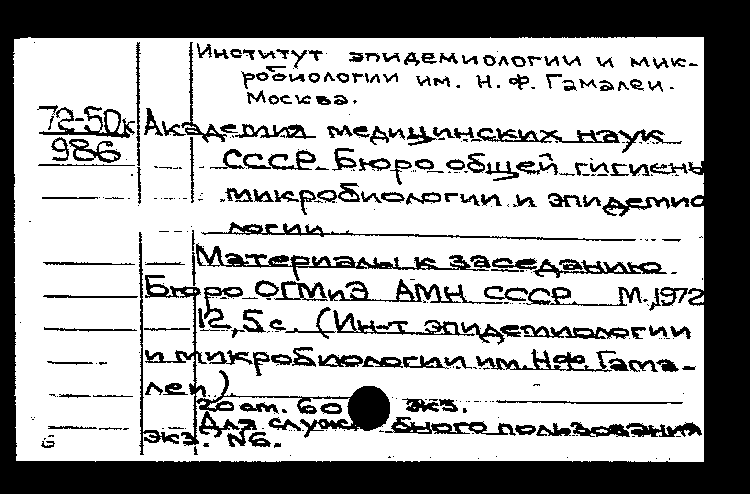 Институт эпидемиологии и мик-
робиологии им. Н.Ф. Гамалеи.
Москва.
72-50к
986
Академия медицинских наук
СССР. Бюро общей гигиены
микробиологии и эпидемио
логии
Материалы к заседанию
Бюро ОГМиЭ АМН СССР. М.,1972
12,5 с. (Ин-т эпидемиологии
и микробиологии им. Н.Ф. Гама-
леи)
20 от. 60 экз.
Для служебного пользования
экз. №6.
6